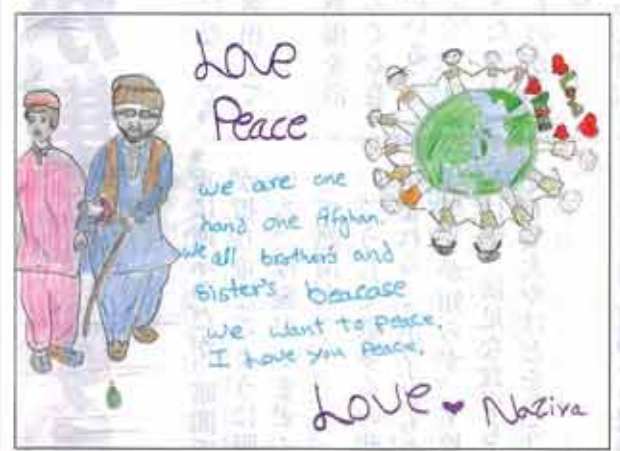 Love
Peace
we are one
hand one Afghan.
we all brothers and
sister's beacase
we want to peace.
I Love you Peace.
Love ♥ Nazira